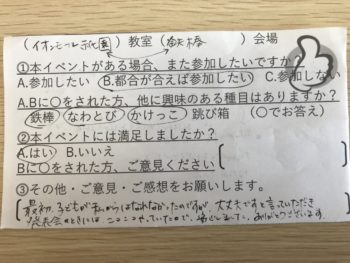 （イオンモール 園）教室（鉄棒）会場
①本イベントがある場合、また参加したいですか？
A.参加したい B.都合が合えば参加したい C.参加しない
A.Bに〇をされた方、他に興味のある種目はありますか？
鉄棒 なわとび かけっこ 跳び箱 （〇でお答え）
②本イベントには満足しましたか？
A.はい B.いいえ
Bに〇をされた方、ご意見ください
③その他・ご意見・ご感想をお願いします。
最初、子どもが私からはなれなかったのですが 大丈夫ですと言っていただき
発表会のときにはニコニコやっていたので、 ありがとうございます。